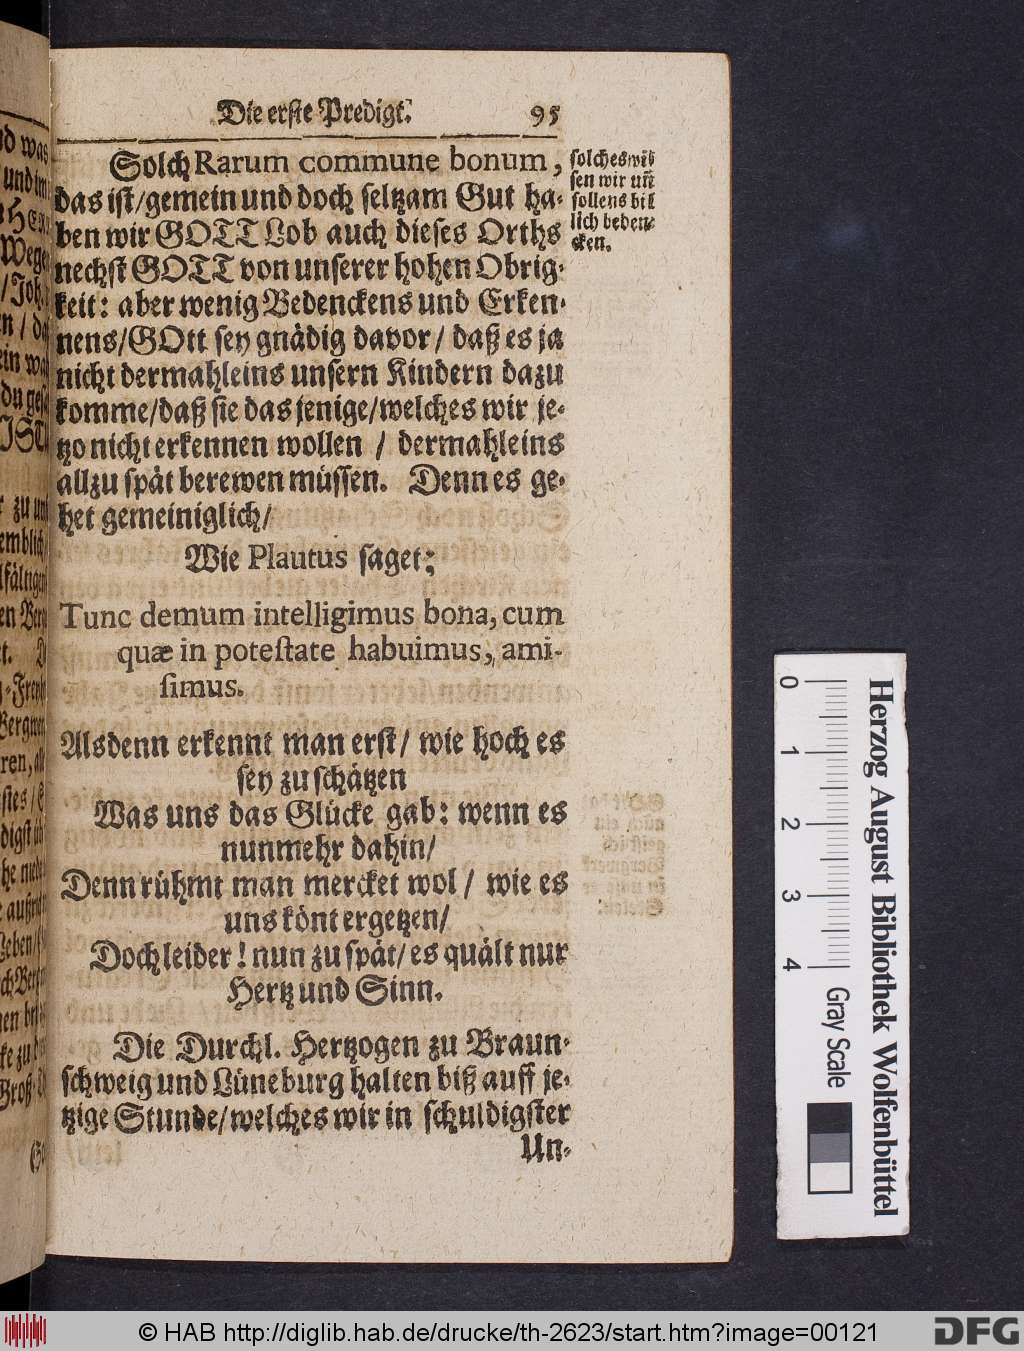 Die erste Predigt.
95
Solch Rarum commune bonum,
das ist/gemein und doch seltzam Gut ha-
ben wir GOTT Lob auch dieses Orths
nechst GOTT von unserer hohen Obrig-
keit: aber wenig Bedenckens und Erken-
nens/GOtt sey gnädig davor/ daß es ja
nicht dermahleins unsern Kindern dazu
komme/daß sie das jenige/welches wir je-
tzo nicht erkennen wollen / dermahleins
allzu spät berewen müssen. Denn es ge-
het gemeiniglich/
Wie Plautus saget;
Tunc demum intelligimus bona, cum
quæ in potestate habuimus, ami-
simus.
Alsdenn erkennt man erst/ wie hoch es
sey zu schätzen
Was uns das Glücke gab: wenn es
nunmehr dahin/
Denn rühmt man mercket wol/ wie es
uns könt ergetzen/
Doch leider! nun zu spät/ es quält nur
Hertz und Sinn.
Die Durchl. Hertzogen zu Braun-
schweig und Lüneburg halten biß auff je-
tzige Stunde/welches wir in schuldigster
Un-
solches wis
sen wir uñ
sollens bil
lich beden-
cken.
0
1
2
3
4
Gray Scale
Herzog August Bibliothek Wolfenbüttel
© HAB http://diglib.hab.de/drucke/th-2623/start.htm?image=00121
DFG